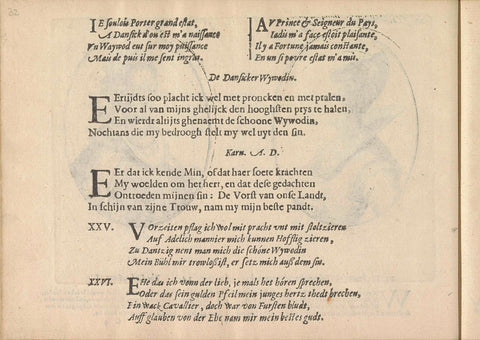 32
IE soulois Porter grand estat,
A Dansick d'ou est m'a naissance
Vn Waywod eut sur moy puissance
Mais de puis il me sent ingrat.
AV Prince & Seigneur du Pays,
Iadis m'a face estoit plaisante,
Il y a Fortune jamais constante,
En un si povre estat m'a mis.
De Dansicker Wywodin.
EErtijdts soo placht ick wel met proncken en met pralen,
Voor al van mijns ghelijck den hooghsten prys te halen,
En wierdt altijts ghenaemt de schoone Wywodin,
Nochtans die my bedroogh stelt my wel uyt den sin.
Karn. A. D.
EEr dat ick kende Min, of dat haer soete krachten
My woelden om her hert, en dat dese gedachten
Ontroerden mijnen sin: De Vorst van onse Landt,
In schijn van zijne Trouw, nam my mijn beste pandt.
XXV. VOrzeiten pflag ich wol mit pracht vnt mit stoltzieren
Auf Adelich mannier mich kunnen Hofflig zieren,
Zu Dantzig nent man mich die schöne Wywodin
Mein Buhl mir trowlos ist, er setz mich auß dem sin.
XXVI. EHe das ich vonn der lieb, je mals het hören sprechen,
Oder das sein gulden Pfeil mein junges hertz thedt brechen,
Ein wack Cavallier, doch war von Fursten bludt,
Auff glauben von der Ehe nam mir mein bestes gudt.